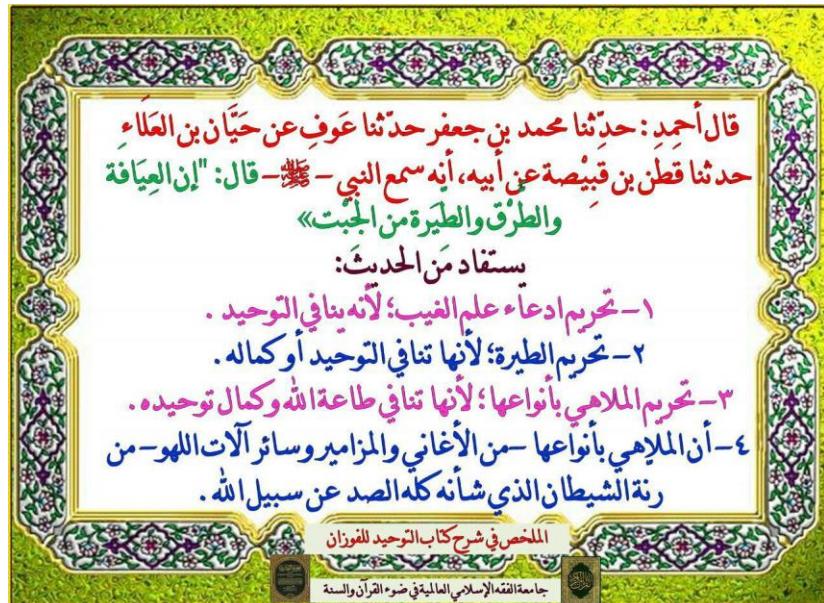 قال أحمد: حدّثنا محمد بن جعفر حدّثنا عَوف عن حَيَّان بن العَلَاءِ
حدثنا قَطَن بن قَبِيْصة عن أبيه، أنه سمع النبي – ﷺ – قال: "إن العِيَافة
والطَّرْق والطِّيَرة من الجْبْت»
يستفاد مَن الحديثَ:
١– تحريم ادعاء علم الغيب؛ لأنه ينافي التوحيد .
٢– تحريم الطيرة؛ لأنها تنافي التوحيد أو كماله .
٣– تحريم الملاهي بأنواعها؛ لأنها تنافي طاعة الله وكمال توحيده .
٤– أن الملاهي بأنواعها –من الأغاني والمزامير وسائر آلات اللهو– من
رنة الشيطان الذي شأنه كله الصد عن سبيل الله .
الملخص في شرح كتاب التوحيد للفوزان
جامعة الفقه الإسلامي العالمية في ضوء القرآن والسنة